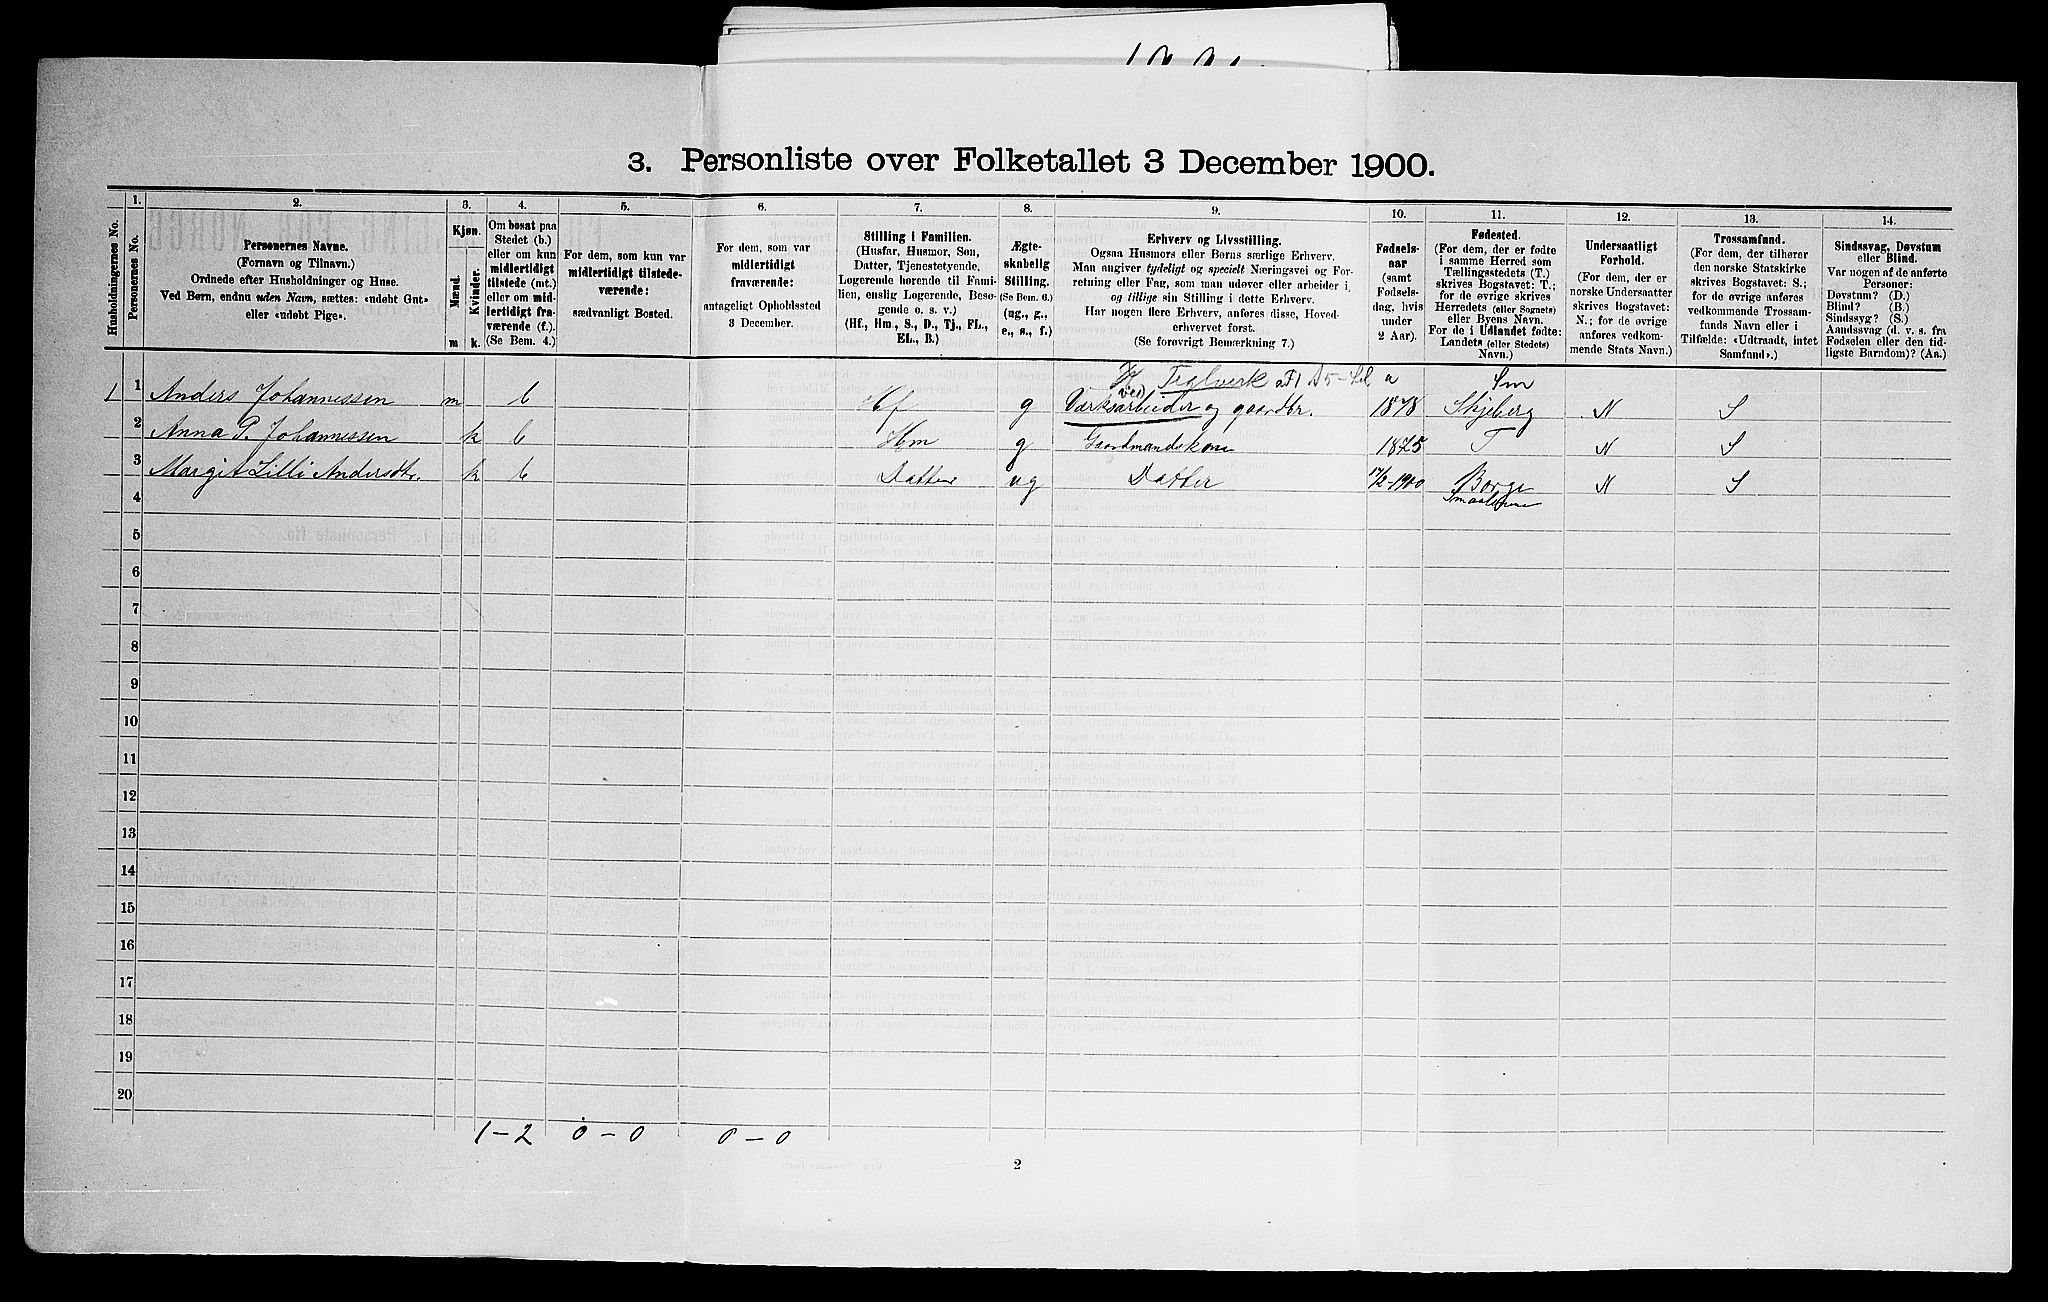 3. Personliste over Folketallet 3 December 1900.
Husholdningernes No.
1.
Personernes No.
2.
Personernes Navne.
(Fornavn og Tilnavn.)
Ordnede efter Husholdninger og Huse.
Ved Børn, endnu uden Navn, sættes: «udøbt Gut»
eller «udøbt Pige».
3.
Kjøn.
Mænd.
Kvinder.
m k.
4.
Om bosat paa
Stedet (b.)
eller om kun
midlertidigt
tilstede (mt.)
eller om mid-
lertidigt fra-
værende (f.).
(Se Bem. 4.)
5.
For dem, som kun var
midlertidigt tilstede-
værende:
sædvanligt Bosted.
6.
For dem, som var
midlertidigt
fraværende:
antageligt Opholdssted
3 December.
7.
Stilling i Familien.
(Husfar, Husmor, Søn,
Datter, Tjenestetyende,
Logerende hørende til Fami-
lien, enslig Logerende, Besø-
gende o. s. v.)
(Hf., Hm., S., D., Tj., FL.,
EL., B.)
8.
Ægte-
skabelig
Stilling.
(Se Bem. 6.)
(ug., g.,
e., s., f.)
9.
Erhverv og Livsstilling.
Ogsaa Husmors eller Børns særlige Erhverv.
Man angiver tydeligt og specielt Næringsvei og For-
retning eller Fag, som man udøver eller arbeider i,
og tillige sin Stilling i dette Erhverv.
Har nogen flere Erhverv, anføres disse, Hoved-
erhvervet først.
(Se forøvrigt Bemærkning 7.)
10.
Fødsels-
aar
(samt
Fødsels-
dag, hvis
under
2 Aar).
11.
Fødested.
(For dem, der er fødte
i samme Herred som
Tællingsstedets (T.)
skrives Bogstavet: T.;
for de øvrige skrives
Herredets (eller Sognets)
eller Byens Navn.
For de i Udlandet fødte:
Landets (eller Stedets)
Navn.)
12.
Undersaatligt
Forhold.
(For dem, der er
norske Undersaatter
skrives Bogstavet:
N.; for de øvrige
anføres vedkom-
mende Stats Navn.)
13.
Trossamfund.
(For dem, der tilhører
den norske Statskirke
skrives Bogstavet: S.;
for de øvrige anføres
vedkommende Trossam-
funds Navn eller i
Tilfælde: «Udtraadt, intet
Samfund».)
14.
Sindssvag, Døvstum
eller Blind.
Var nogen af de anførte
Personer:
Døvstum? (D.)
Blind? (B.)
Sindssyg? (S.)
Aandssvag (d. v. s. fra
Fødselen eller den tid-
ligste Barndom)? (Aa.)
Teglverk a Sm
ved
1 1 Anders Johannessen m b Hf g Værksarbeider og gaardbr. 1878 Skjeberg N S
2 Anna P. Johannessen k b Hm g Gaardmandskone 1875 T N S
3 Margit Lilli Andersdtr. k b Datter ug Datter 17/2-1900 Borge N S
4 Smaalenene
5
6
7
8
9
10
11
12
13
14
15
16
17
18
19
20
1-2 0-0 0-0
2